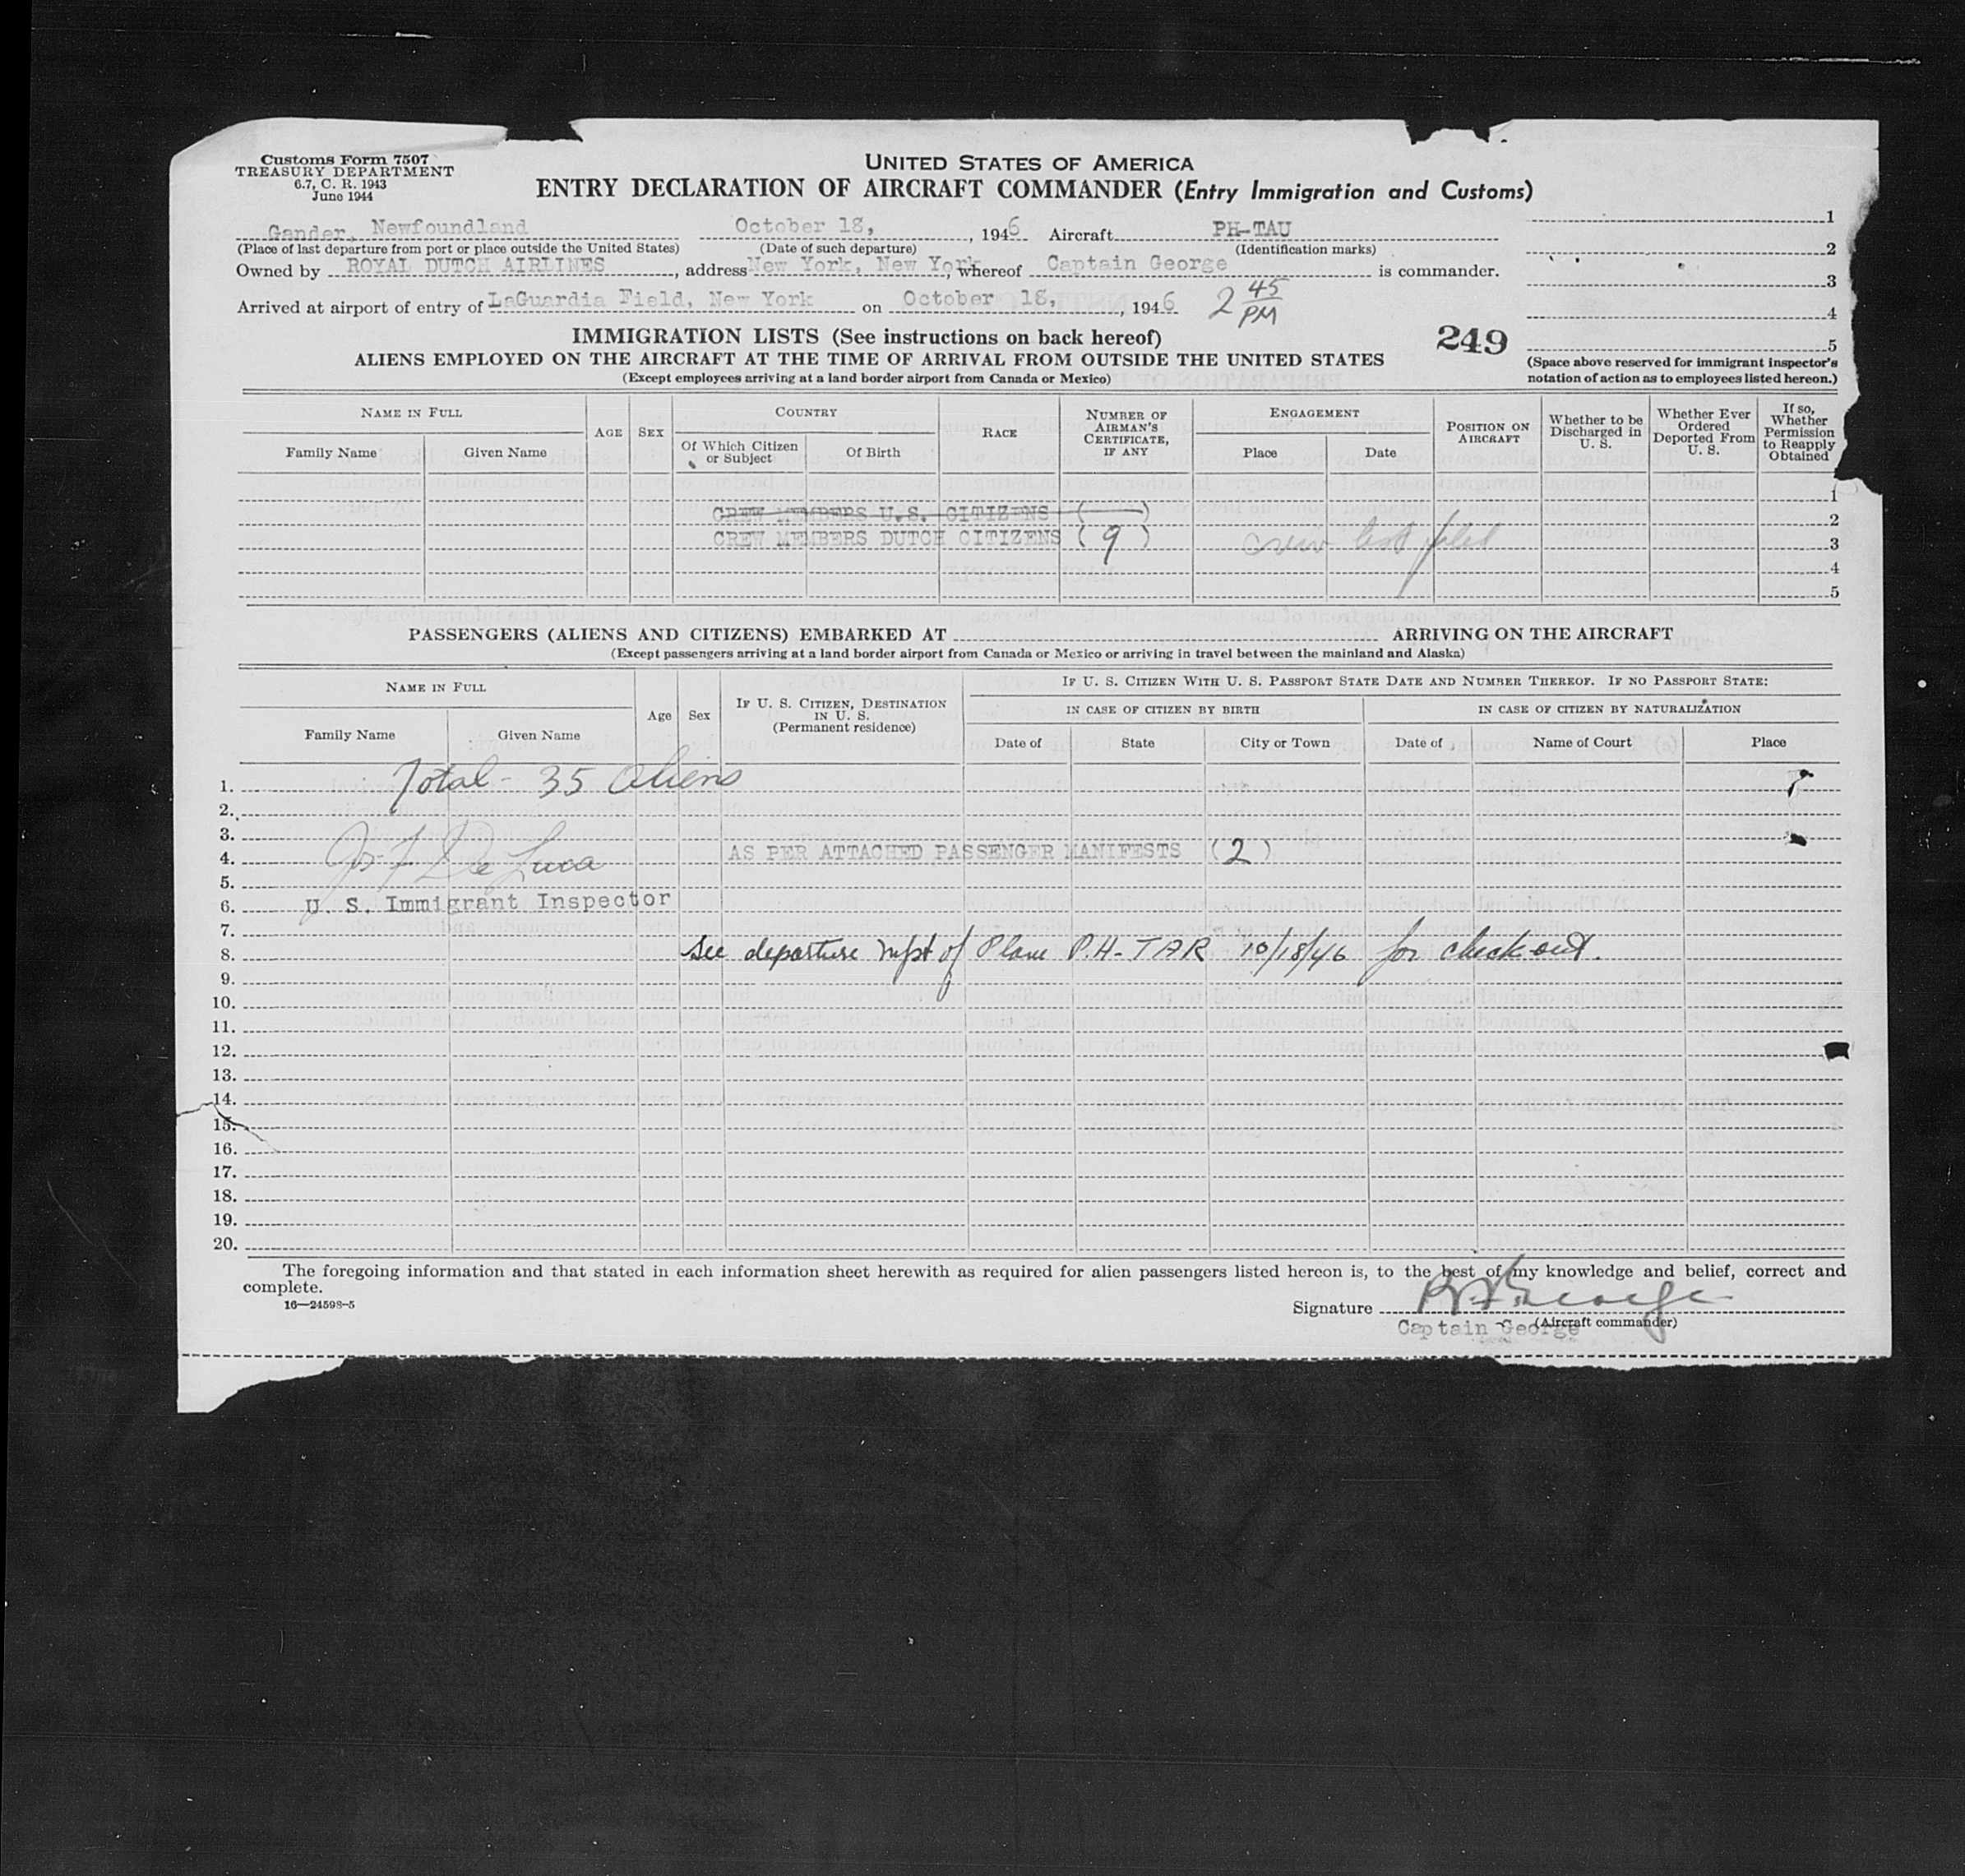 Customs Form 7507
TREASURY DEPARTMENT
6.7, C. R. 1943
June 1944
UNITED STATES OF AMERICA
ENTRY DECLARATION OF AIRCRAFT COMMANDER (Entry Immigration and Customs)
Gander, Newfoundland October 18, , 1946 Aircraft PH-TAU
(Place of last departure from port or place outside the United States) (Date of such departure) (Identification marks)
Owned by ROYAL DUTCH AIRLINES, address New York, New York, whereof Captain George is commander.
Arrived at airport of entry of LaGuardia Field, New York on October 18, , 1946 2 45 PM
1
2
3
4
5
(Space above reserved for immigrant inspector's
notation of action as to employees listed hereon.)
IMMIGRATION LISTS (See instructions on back hereof)
249
ALIENS EMPLOYED ON THE AIRCRAFT AT THE TIME OF ARRIVAL FROM OUTSIDE THE UNITED STATES
(Except employees arriving at a land border airport from Canada or Mexico)
NAME IN FULL
Family Name Given Name
AGE SEX
COUNTRY
Of Which Citizen or Subject Of Birth
RACE
NUMBER OF AIRMAN'S CERTIFICATE, IF ANY
ENGAGEMENT
Place Date
POSITION ON AIRCRAFT
Whether to be Discharged in U. S.
Whether Ever Ordered Deported From U. S.
If so, Whether Permission to Reapply Obtained
1
CREW MEMBERS U.S. CITIZENS ( ) 2
CREW MEMBERS DUTCH CITIZENS ( 9 ) crew list filed 3
4
5
PASSENGERS (ALIENS AND CITIZENS) EMBARKED AT ARRIVING ON THE AIRCRAFT
(Except passengers arriving at a land border airport from Canada or Mexico or arriving in travel between the mainland and Alaska)
NAME IN FULL
Family Name Given Name
Age Sex
IF U. S. CITIZEN, DESTINATION IN U. S.
(Permanent residence)
IF U. S. CITIZEN WITH U. S. PASSPORT STATE DATE AND NUMBER THEREOF. IF NO PASSPORT STATE:
IN CASE OF CITIZEN BY BIRTH IN CASE OF CITIZEN BY NATURALIZATION
Date of State City or Town Date of Name of Court Place
1. Total - 35 aliens
2.
3.
4. Jos F De Luca AS PER ATTACHED PASSENGER MANIFESTS (2)
5.
6. U. S. Immigrant Inspector
7.
8. See departure of Plane P.H-TAR 10/18/46 for check out.
9.
10.
11.
12.
13.
14.
15.
16.
17.
18.
19.
20.
The foregoing information and that stated in each information sheet herewith as required for alien passengers listed hereon is, to the best of my knowledge and belief, correct and
complete.
16—24598-5
Signature George
Captain George (Aircraft commander)